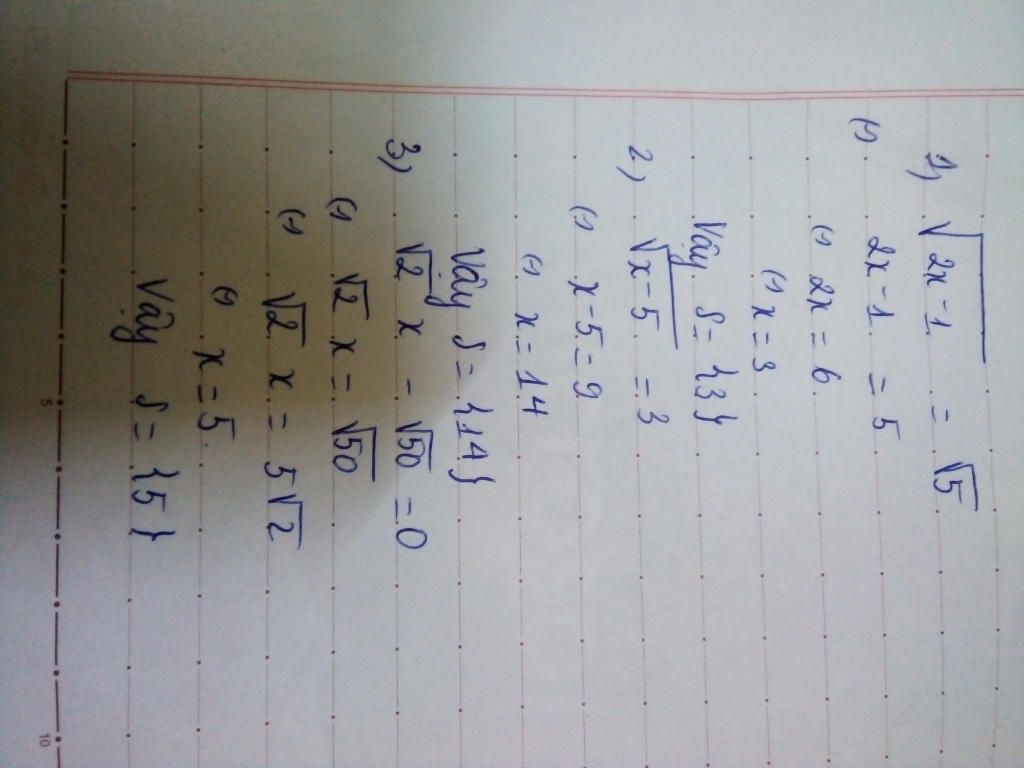 1) √(2x-1) = √5
(=) 2x-1 = 5
(=) 2x = 6
(=) x = 3
Vậy S = {3}
2) √(x-5) = 3
(=) x-5 = 9
(=) x = 14
Vậy S = {14}
3) √2 x - √50 = 0
(=) √2 x = √50
(=) √2 x = 5√2
(=) x = 5
Vậy S = {5}
5
10